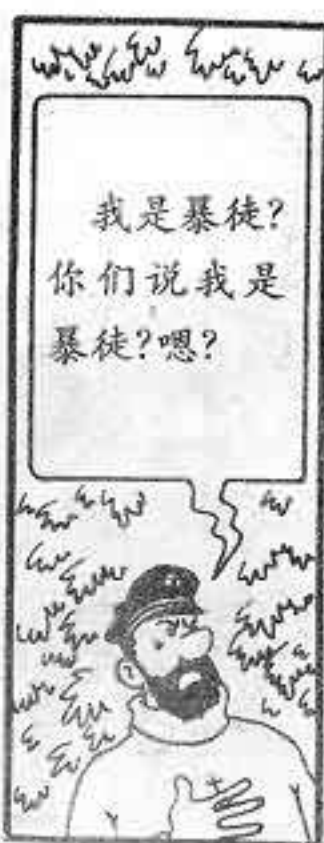 我是暴徒?
你们说我是
暴徒?嗯?